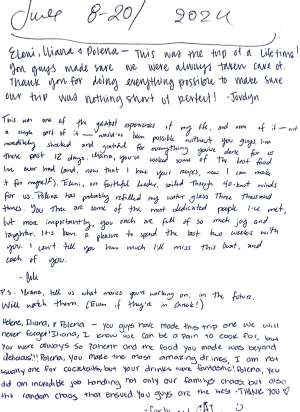 June 8-20/ 2024
Eleni, Iliana & Polena - This was the trip of a lifetime!
You guys made sure we were always taken care of.
Thank you for doing everything possible to make sure
our trip was nothing short of perfect! - Jordyn
This was one of the greatest experiences of my life, and none of it - not
a single part of it - would've been possible without you guys. I'm
incredibly thankful and grateful for everything you've done for us
these past 12 days. Iliana, you've cooked some of the best food
I've ever had (and, now that I have your recipes, now I can make
it for myself). Eleni, our faithful leader, sailed through 40-knot winds
for us. Polena has probably refilled my water glass three thousand
times. You three are some of the most dedicated people I've met,
but more importantly, you each are full of so much joy and
laughter. It's been a pleasure to spend the last two weeks with
you. I can't tell you how much I'll miss this boat, and
each of you.
P.S. Iliana, tell us what movies you're working on, in the future.
We'll watch them. (Even if they're in Greek!)
Iliana, & Polena - you guys have made this trip one we will
never forget! Iliana, I know we can be a pain to cook for, but
you were always so patient and the food you made was beyond
delicious!!! Polena, you make the most amazing drinks, I am not
usually one for cocktails, but your drinks were fantastic! Polena, you
did an incredible job handling not only our family's chaos but also
the random chaos that ensued. You guys are the best - THANK YOU ♡